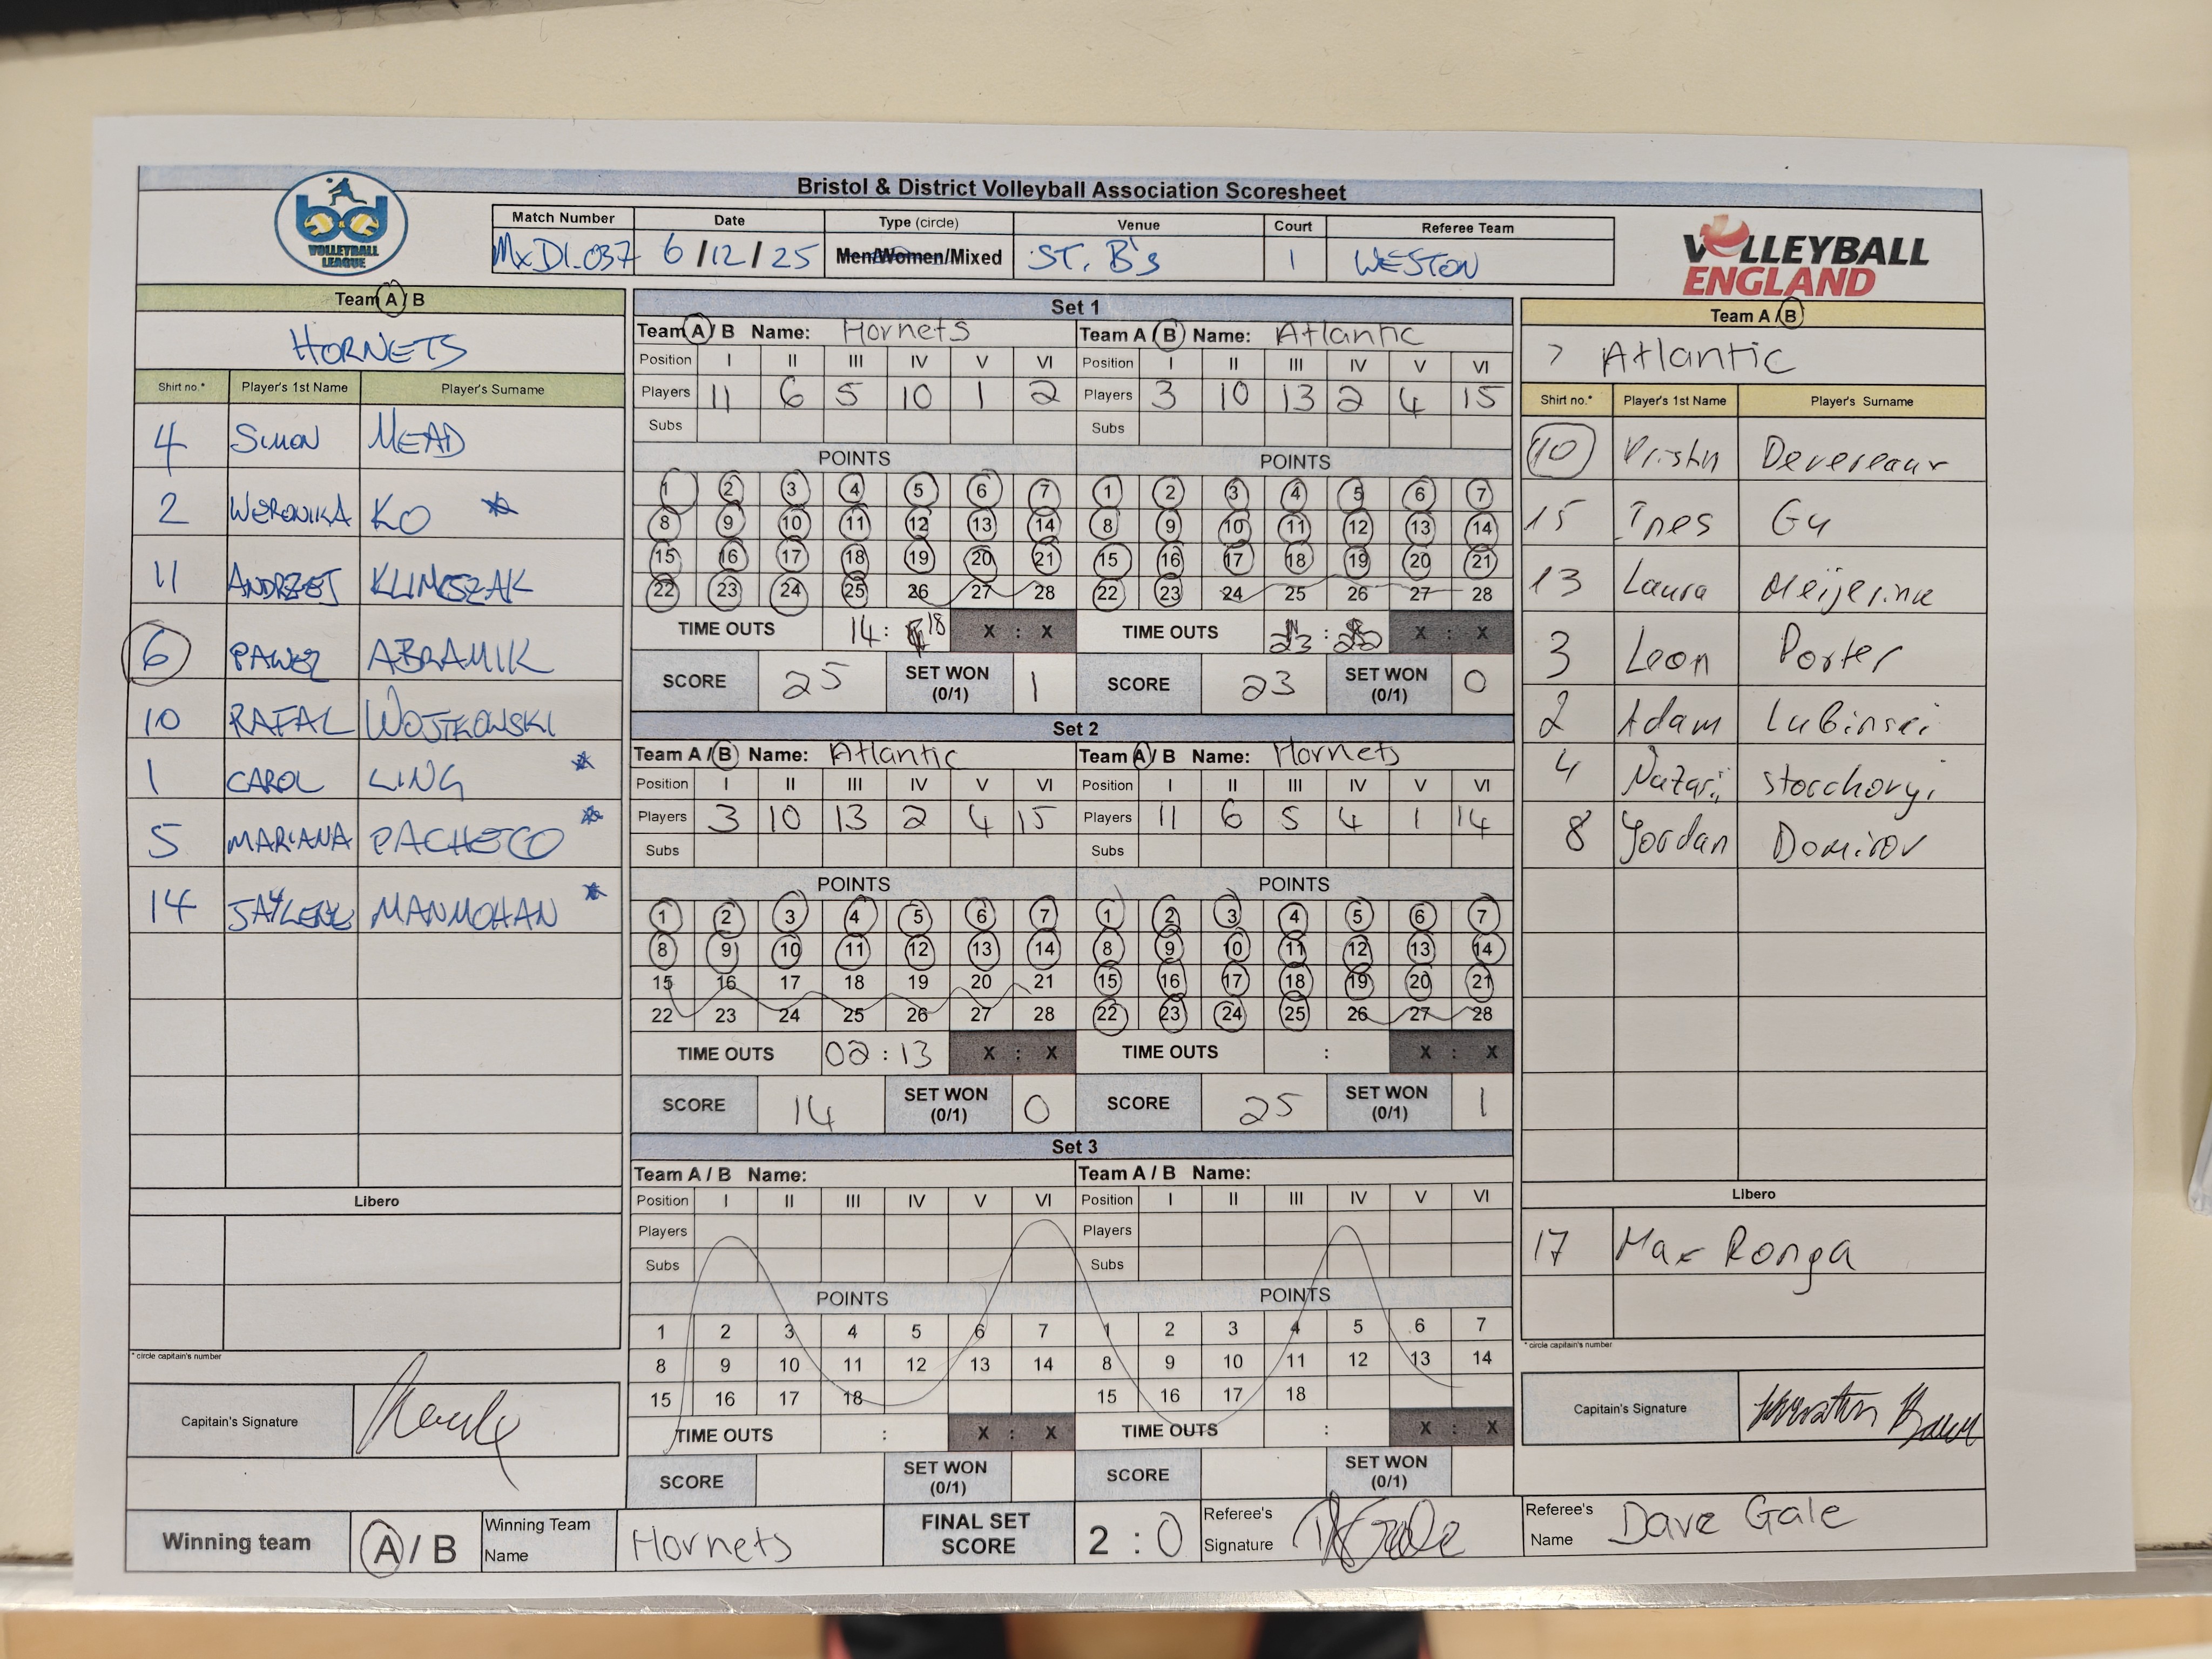 Bristol & District Volleyball Association Scoresheet
VOLLEYBALL LEAGUE
Match Number Date Type (circle) Venue Court Referee Team
MxD1.037 6/12/25 Men/Women/Mixed ST. B's 1 WESTON
VOLLEYBALL
ENGLAND
Team A/B
HORNETS
Shirt no.* Player's 1st Name Player's Surname
4 SIMON MEAD
2 WERONIKA KO
11 ANDRZEJ KLIMCSZAK
6 PAWEL ABRAMIK
10 RAFAL WOJTKOWSKI
1 CAROL LING
5 MARIANA PACHECO
14 JAYLENE MANMOHAN
Libero
* circle captain's number
Capitain's Signature
Set 1
Team A/B Name: Hornets Team A/B Name: Atlantic
Position I II III IV V VI Position I II III IV V VI
Players 11 6 5 10 1 2 Players 3 10 13 2 4 15
Subs Subs
POINTS POINTS
1 2 3 4 5 6 7 1 2 3 4 5 6 7
8 9 10 11 12 13 14 8 9 10 11 12 13 14
15 16 17 18 19 20 21 15 16 17 18 19 20 21
22 23 24 25 26 27 28 22 23 24 25 26 27 28
TIME OUTS 14 : 18 X : X TIME OUTS 23 : X : X
SCORE 25 SET WON (0/1) 1 SCORE 23 SET WON (0/1) 0
Set 2
Team A/B Name: Atlantic Team A/B Name: Hornets
Position I II III IV V VI Position I II III IV V VI
Players 3 10 13 2 4 15 Players 11 6 5 4 1 14
Subs Subs
POINTS POINTS
1 2 3 4 5 6 7 1 2 3 4 5 6 7
8 9 10 11 12 13 14 8 9 10 11 12 13 14
15 16 17 18 19 20 21 15 16 17 18 19 20 21
22 23 24 25 26 27 28 22 23 24 25 26 27 28
TIME OUTS 02 : 13 X : X TIME OUTS : X : X
SCORE 14 SET WON (0/1) 0 SCORE 25 SET WON (0/1) 1
Set 3
Team A / B Name: Team A / B Name:
Position I II III IV V VI Position I II III IV V VI
Players Players
Subs Subs
POINTS POINTS
1 2 3 4 5 6 7 1 2 3 4 5 6 7
8 9 10 11 12 13 14 8 9 10 11 12 13 14
15 16 17 18 15 16 17 18
TIME OUTS : X : X TIME OUTS : X : X
SCORE SET WON (0/1) SCORE SET WON (0/1)
Team A/B
Atlantic
Shirt no.* Player's 1st Name Player's Surname
10 Devereaux
15 Ines Gu
13 Laura Meijerink
3 Leon Porter
2 Adam Lubinsei
4 Nazarii
8 Yordan Domirov
Libero
17 Max Ronga
* circle captain's number
Capitain's Signature
Winning team A/B Winning Team Name Hornets FINAL SET SCORE 2 : 0 Referee's Signature Referee's Name Dave Gale